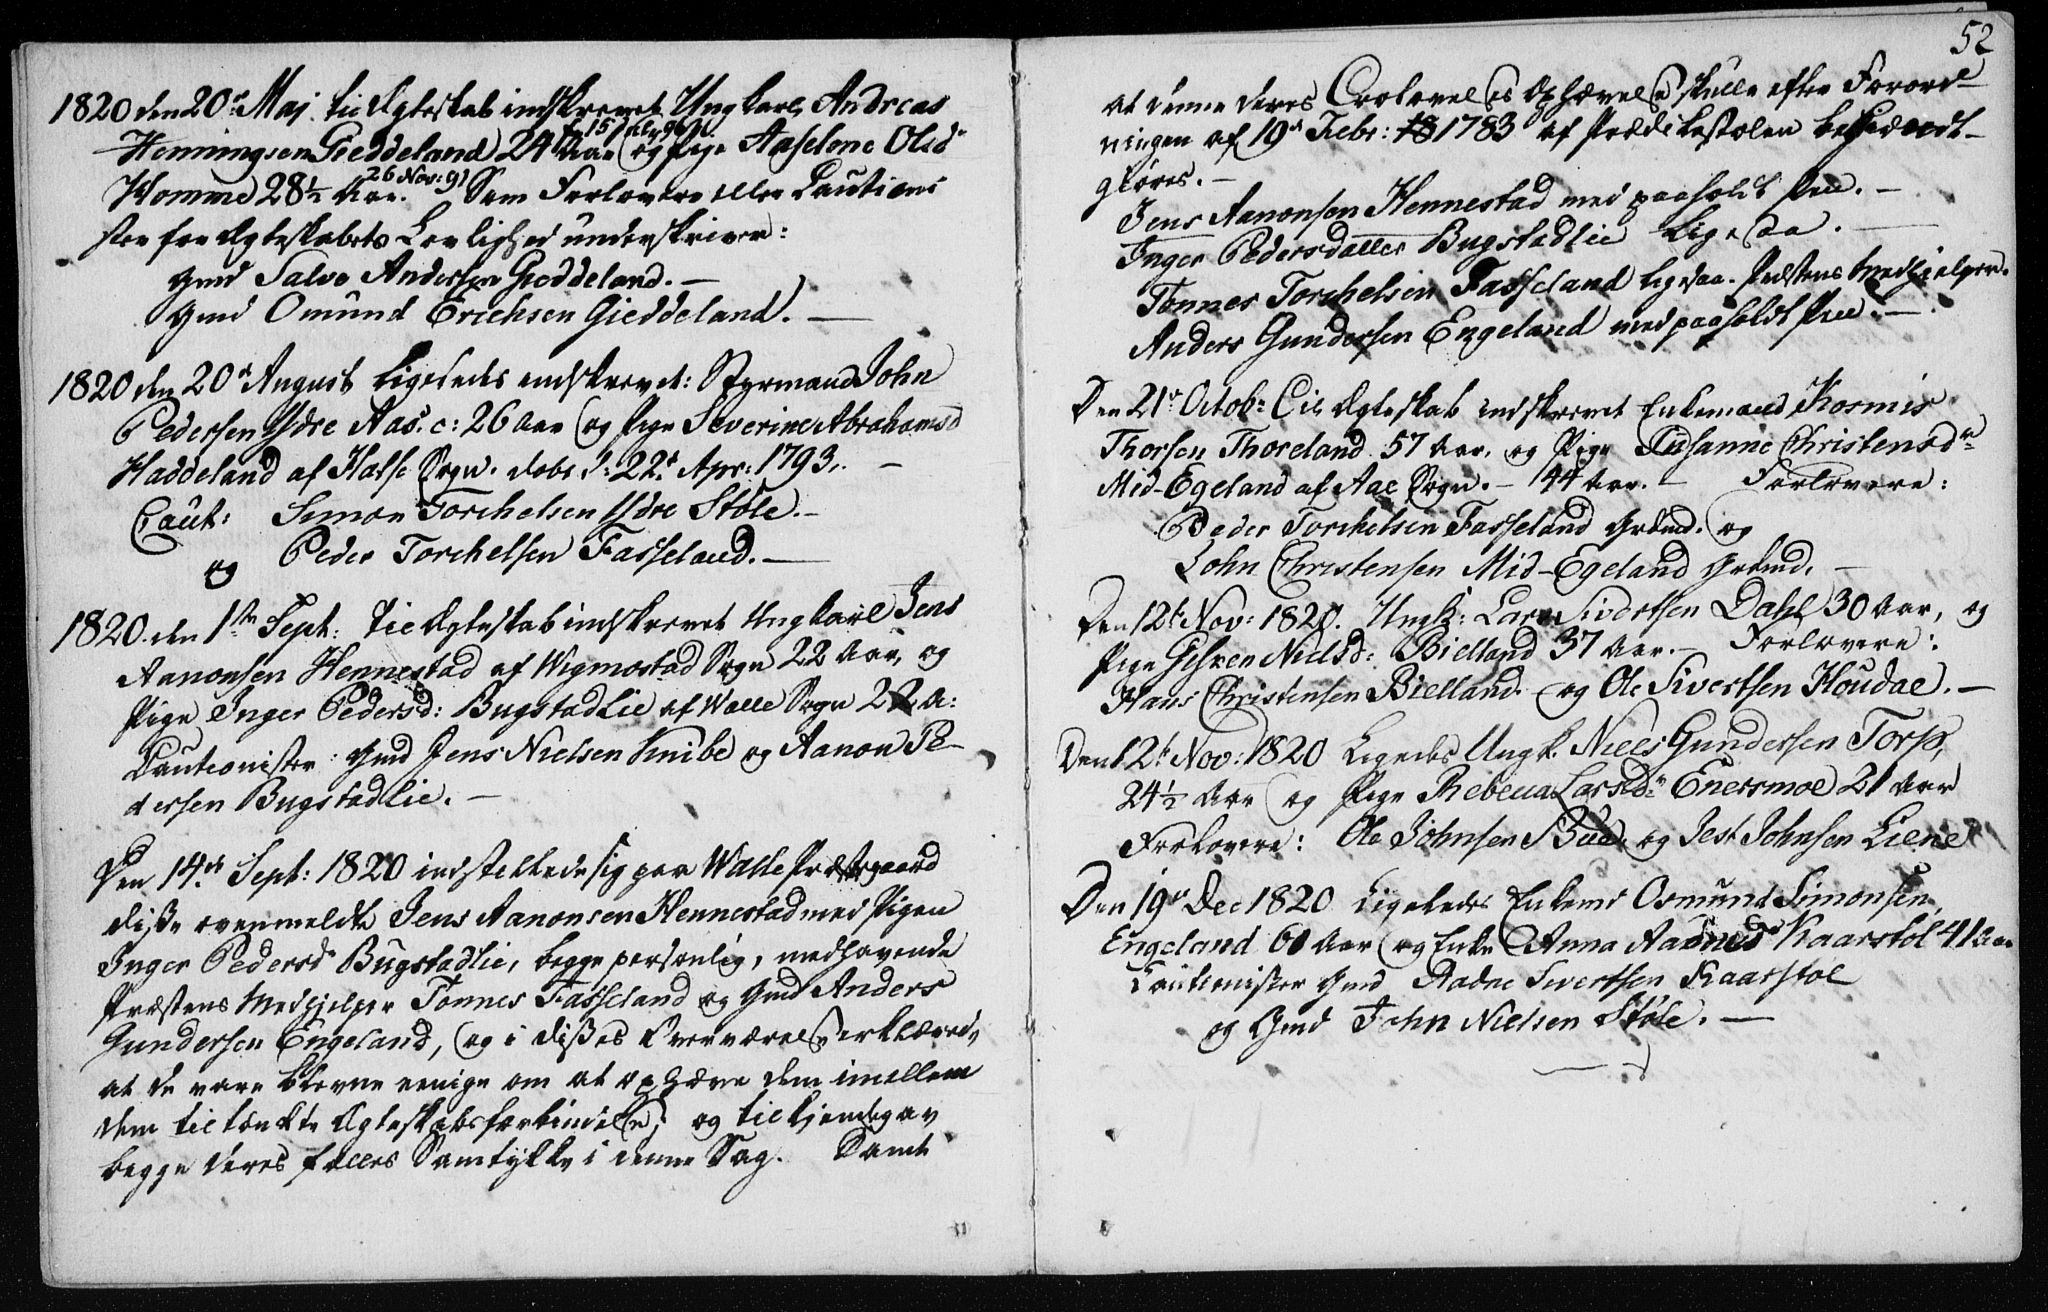 1820 den 20de Maj. til Ægteskab indskrevet Ungkarl Andreas
Henningsen Gieddeland 24 Aar og Pige Aaselene Olsd.
Homme 28½ Aar. 26 Nov: 91 Som Forlovere eller Cautioni
ster for Ægteskabets Lovlighed underskriver:
Gmd Salve Andersen Gieddeland. —
Gmd Omund Erichsen Gieddeland. —
1820 den 20de August ligeledes indskrevet: Styrmand John
Pedersen Ydre Aas. c: 26 Aar og Pige Severine Abrahamsd
Haddeland af Halse Sogn. døbt d: 22de Apr: 1793. —
Caut: Simon Torchelsen Ydre Støle. —
og Peder Torchelsen Fasseland. —
1820. den 1ste Sept: til Ægteskab indskrevet Ungkarl Jens
Aanonsen Hennestad af Wigmostad Sogn 22 Aar, og
Pige Inger Pedersd: Bugstadlie af Walle Sogn 22 A:
Cautionister: Gmd Jens Nielsen Knibe og Aanon Pe-
dersen Bugstadlie. —
Den 14de Sept: 1820 indstillede sig paa Walle Præstegaard
disse ovenmeldte Jens Aanonsen Hennestad med Pigen
Inger Pedersd Bugstadlie, begge personlig, medhavende
Præstens Medhielper Tønnes Fasseland og Gmd Anders
Gundersen Engeland, og i disses Overværelse erklærede,
at de vare blevne eenige om at ophæve den imellem
dem tiltænkte Ægteskabsforbindelse; og tilkjendegav
begge deres fælles Samtykke i denne Sag. Samt
52
at denne deres Trolovelses Ophævelse skulle efter Forord-
ningen af 19de Febr: 1783 af Prædikestolen bekiendt-
giøres. —
Jens Aanonsen Hennestad med paaholdt Pen. —
Inger Pedersdatter Bugstadlie ligesaa. —
Tønnes Torchelsen Fasseland ligesaa. Præstens Medhielper.
Anders Gundersen Engeland med paaholdt Pen. —
Den 21de Octob: til Ægteskab indskrevet Enkemand Kosmis
Thorsen Thoreland 57 Aar, og Pige Susanne Christensdr
Mid-Egeland af Aae Sogn. — 44 Aar. — Forlovere:
Peder Torchelsen Fasseland Grdmd. og
John Christensen Mid-Egeland Grdmd. —
Den 12te Nov: 1820. Ungk: Lars Sivertsen Dahl 30 Aar, og
Pige Gitren Nielsd: Bielland 37 Aar. — Forlovere:
Hans Christensen Bielland. og Ole Sivertsen Houdal. —
Den 12te Nov: 1820 Ligeledes Ungk. Niels Gundersen Torp,
24½ Aar og Pige Rebecca Larsdr Enersmoe 21 Aar
Forlovere: Ole Johnsen Bue. og Jest Johnsen Liene
Den 19de Dec 1820 Ligeledes Enkemd Osmund Simonsen,
Engeland 60 Aar og Enke Anna Aadnesdr Kaarstøl 41 Aar
Cautionister Gmd Aadne Sivertsen Kaarstøl
og Gmd John Nielsen Støle. —